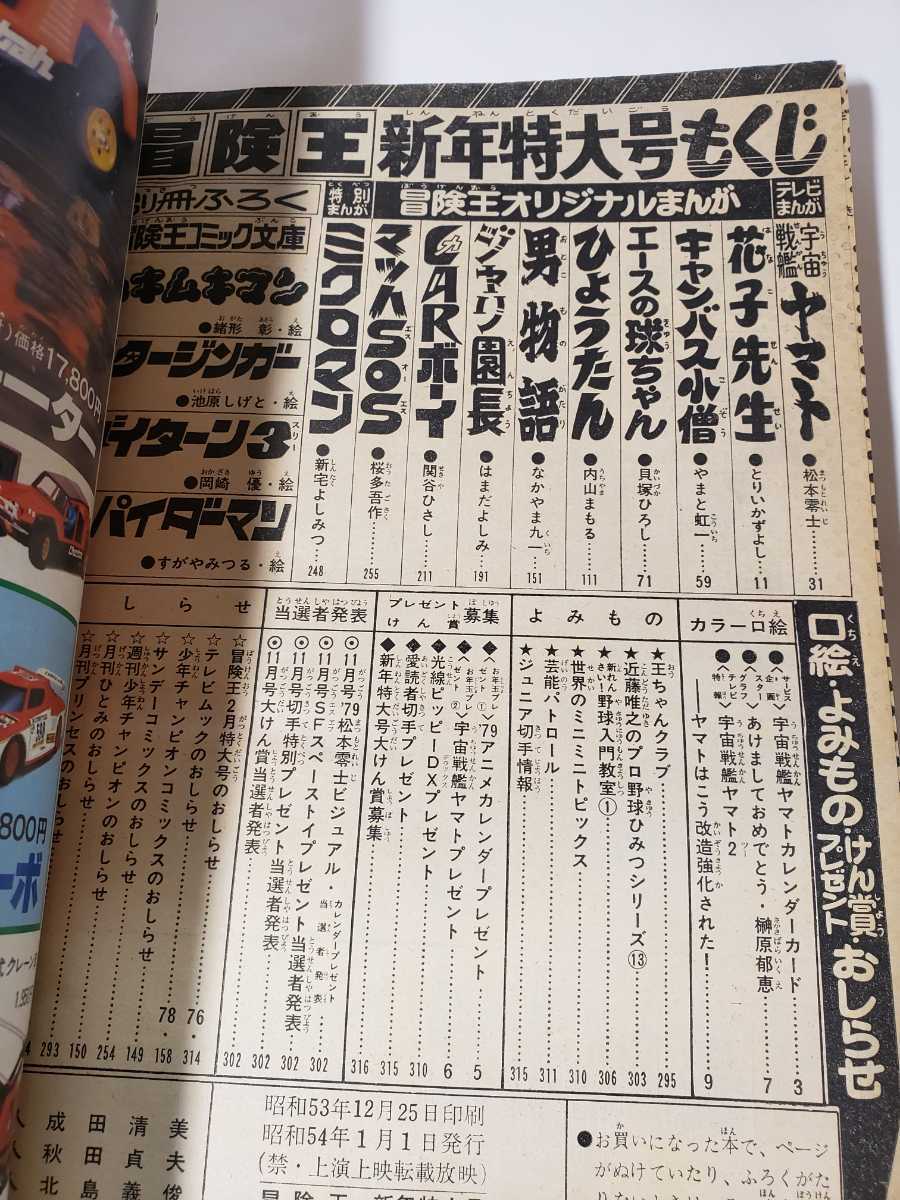 冒険王 新年特大号もくじ
テレビまんが
宇宙戦艦ヤマト ●松本零士……31
冒険王オリジナルまんが
花子先生 ●とりいかずよし……11
キャンバス小僧 ●やまと虹一……59
エースの球ちゃん ●貝塚ひろし……71
ひょうたん ●内山まもる……111
男物語 ●なかやま九一……151
ジャリ園長 ●はまだよしみ……191
CARボーイ ●関谷ひさし……211
特別まんが
マッハSOS ●桜多吾作……255
ミクロマン ●新宅よしみつ……248
別冊ふろく
冒険王コミック文庫
キムキマン
●緒形 彰・絵
タージンガー
●池原しげと・絵
ダイターン3
●岡崎 優・絵
パイダーマン
●すがやみつる・絵
口絵・よみもの・けん賞・プレゼント・おしらせ
カラー口絵
●〈サービス企画〉宇宙戦艦ヤマトカレンダーカード……3
●〈グラフスター〉あけましておめでとう・榊原郁恵……7
●〈テレビ特報〉宇宙戦艦ヤマト2
ヤマトはこう改造強化された!……9
よみもの
★王ちゃんクラブ……295
★近藤唯之のプロ野球ひみつシリーズ⑬……303
★野球入門教室①……306
★世界のミニミニトピックス……310
★芸能パトロール……311
★ジュニア切手情報……315
プレゼントけん賞募集
◆〈お年玉プレゼント①〉'79アニメカレンダープレゼント……5
◆〈お年玉プレゼント②〉宇宙戦艦ヤマトプレゼント……6
◆光線ピッピーDXプレゼント……310
◆愛読者切手プレゼント……315
◆新年特大号大けん賞募集……316
当選者発表
◎11月号'79松本零士ビジュアル・カレンダープレゼント当選者発表……302
◎11月号SFスペーストイプレゼント当選者発表……302
◎11月号切手特別プレゼント当選者発表……302
◎11月号大けん賞当選者発表……302
しらせ
☆冒険王2月特大号のおしらせ……314
☆テレビムックのおしらせ……76・78
☆少年チャンピオンコミックスのおしらせ……158
☆サンデーコミックスのおしらせ……149
☆週刊少年チャンピオンのおしらせ……254
☆月刊ひとみのおしらせ……150
☆月刊プリンセスのおしらせ……293
昭和53年12月25日印刷
昭和54年1月1日発行
(禁・上演上映転載放映)
●お買いになった本で、ページ
がぬけていたり、ふろくがた
成田清美
秋田貞夫
北島義俊
価格17,800円
800円